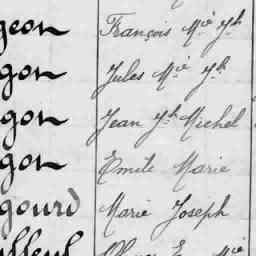 geon François Mie Jh
gon Jules Mie Jh
gon Jean Jh Michel
gon Emile Marie
gourd Marie Joseph
illeul